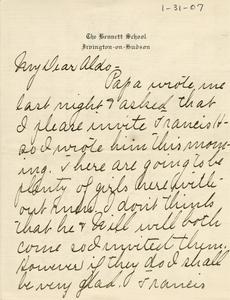 1-31-07
The Bennett School
Irvington-on-Hudson
My Dear Aldo -
Papa wrote me
last night & asked that
I please invite Francis H-
so I wrote him this mor-
ning. There are going to be
plenty of girls here with-
out him. I don't think
that he & will both
come so I invited them.
However if they do I shall
be very glad. Francis